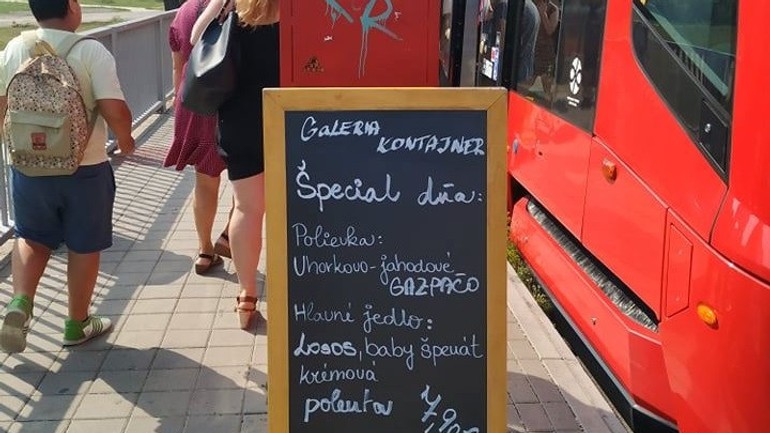 GaLERIA
KONTAJNER
Špecial dňa:
Polievka:
Uhorkovo-jahodové
GAZPAČO
Hlavné jedlo:
Losos, baby špenát
krémová
polenta
7,90€